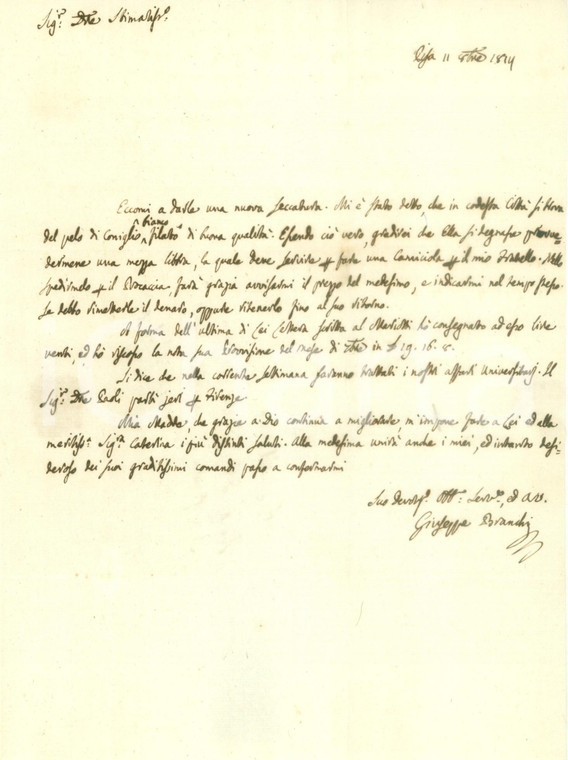 Sig.r D.re Stimatiss.o
Pisa 11 8bre 1814
Eccomi a darle una nuova seccatura. Mi è stato detto, che in codesta Città si trova
del pelo di Coniglio bianco filato di buona qualità. Essendo ciò vero, gradirei che Ella si degnasse provve-
dermene una mezza libbra, la quale deve servire p fare una Camiciola p il mio Fratello. Nello
spedirmelo p il Procaccia, farà grazia avvisarmi il prezzo del medesimo, e indicarmi nel tempo stesso
se debbo rimetterle il denaro, oppure ritenerlo fino al suo ritorno.
A forma dell'ultima di Lei Lettera scritta al Mariotti ho consegnato ad esso lire
venti, ed ho riscosso la nota sua Provvisione del mese di 7bre in 19. 16. 8.
Si dice che nella corrente settimana saranno trattati i nostri affari Universitarj. Il
Sig.r D.re Paoli partì jeri p Firenze.
Mia Madre, che grazie a Dio continua a migliorare, m'impone fare a Lei ed alla
meritiss.a Sig.ra Caterina i più distinti saluti. Alla medesima unirà anche i miei, ed intanto desi-
deroso dei suoi graditissimi comandi passo a confermarmi
Suo devotiss.o Obb.o Serv.re, ed A.co
Giuseppe Branchi